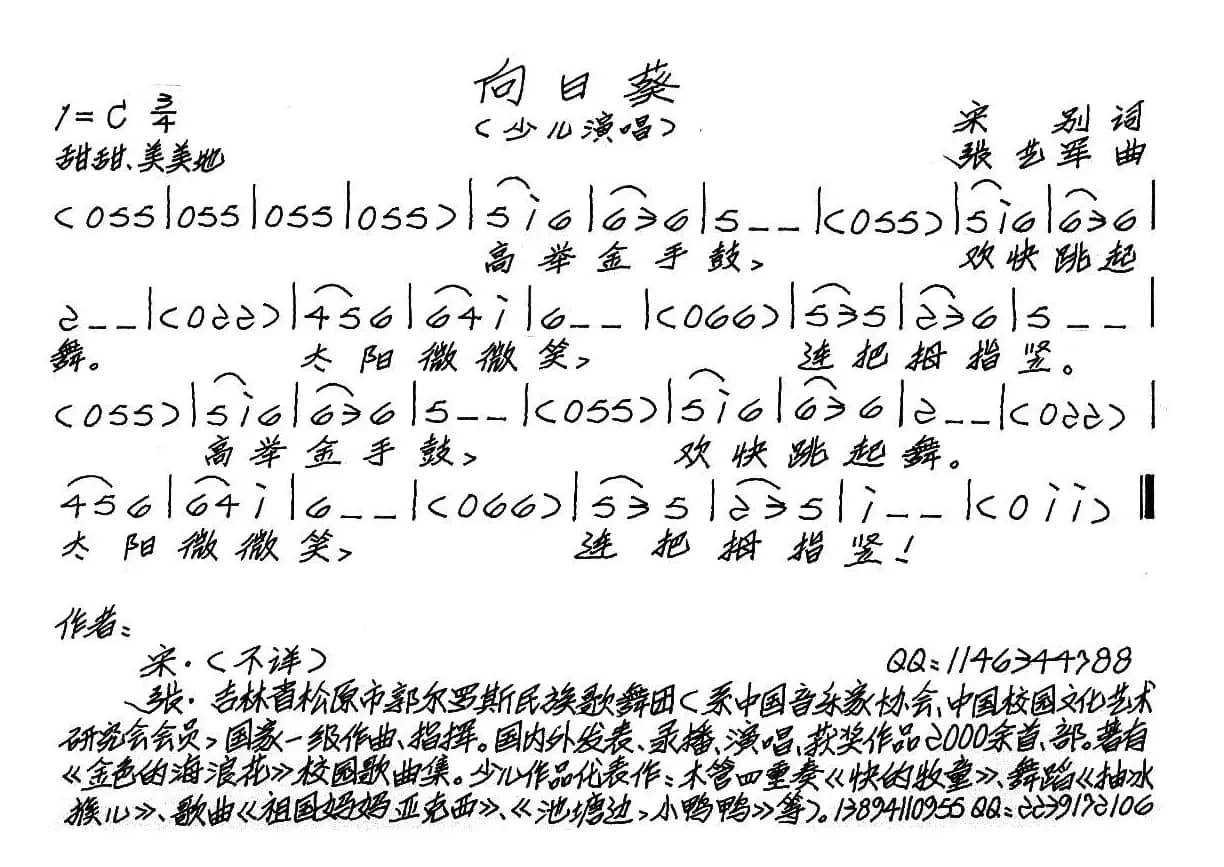 向日葵
(少儿演唱)
1=C 3/4
宋 别 词
甜甜、美美地
张艺军 曲
(055|055|055|055)|5i6|636|5--|(055)|5i6|636|
高举金手鼓, 欢快跳起
2--|(022)|456|64i|6--|(066)|535|236|5--|
舞。 太阳微微笑, 连把拇指竖。
(055)|5i6|636|5--|(055)|5i6|636|2--|(022)|
高举金手鼓, 欢快跳起舞。
456|64i|6--|(066)|535|235|i--|(0ii)‖
太阳微微笑, 连把拇指竖!
作者:
宋·(不详) QQ:1146344788
张·吉林省松原市郭尔罗斯民族歌舞团(系中国音乐家协会、中国校园文化艺术
研究会会员,国家一级作曲、指挥。国内外发表、录播、演唱、获奖作品2000余首、部。著有
《金色的海浪花》校园歌曲集。少儿作品代表作:木管四重奏《快的牧童》、舞蹈《抽水
猴儿》、歌曲《祖国妈妈亚克西》、《池塘边,小鸭鸭》等)。13894110955 QQ:2239172106